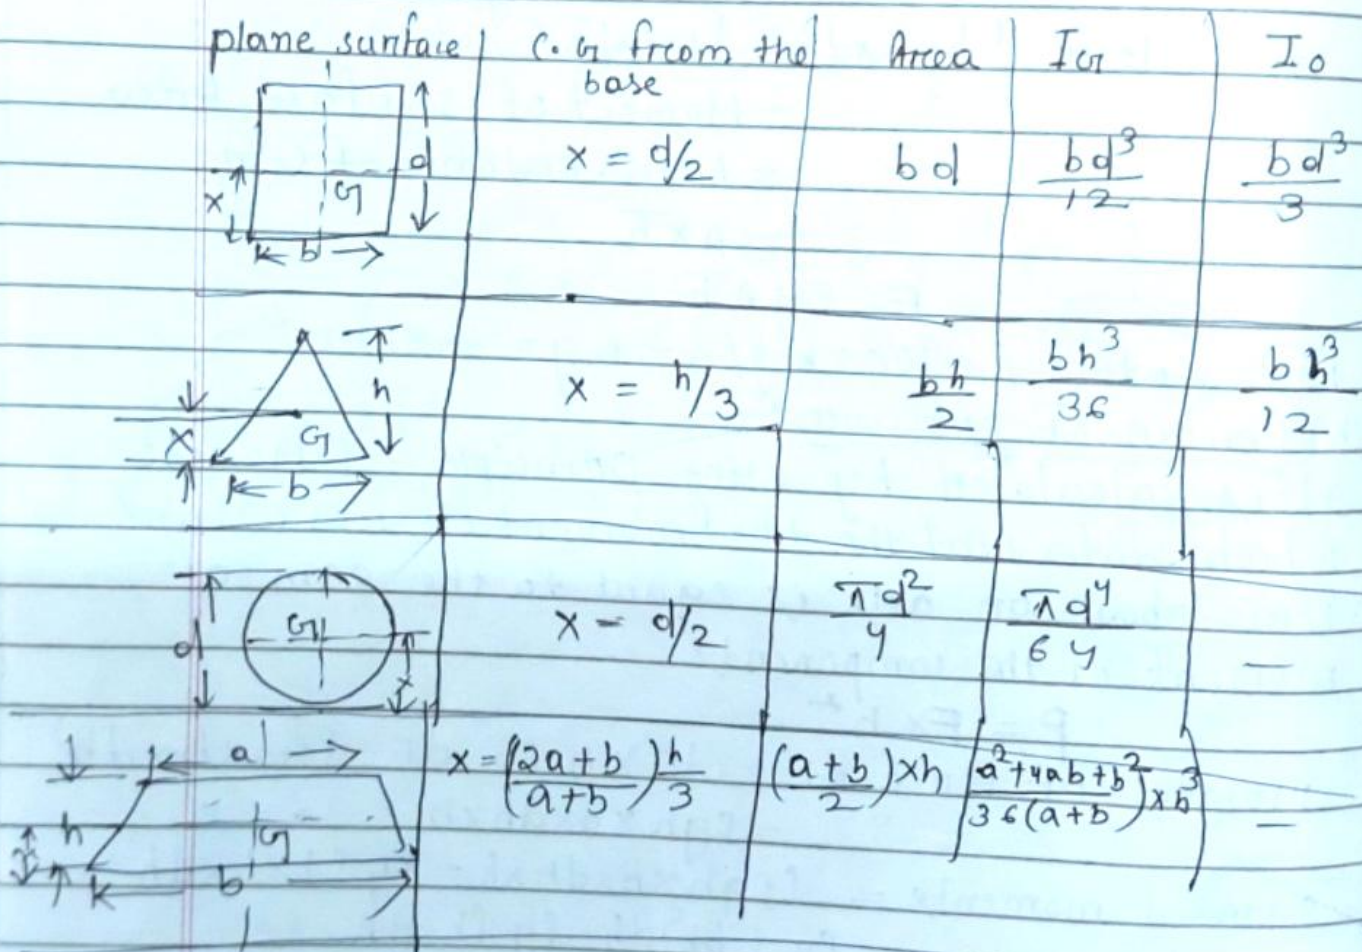 plane surface | C.G from the base | Area | IG | Io
d
x G
b
x = d/2 | bd | bd³/12 | bd³/3
h
x G
b
x = h/3 | bh/2 | bh³/36 | bh³/12
d G x
x = d/2 | πd²/4 | πd⁴/64 | —
a
h G
x
b
x = (2a+b/a+b) h/3 | (a+b/2)×h | (a²+4ab+b²/36(a+b))×h³ | —